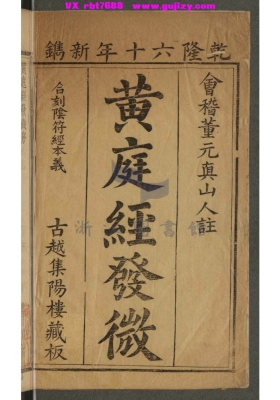 VX rbt7688 www.gujizy.com
乾隆六十年新鐫
會稽董元真山人註
黄庭經發微
合刻陰符經本義
古越集陽樓藏板